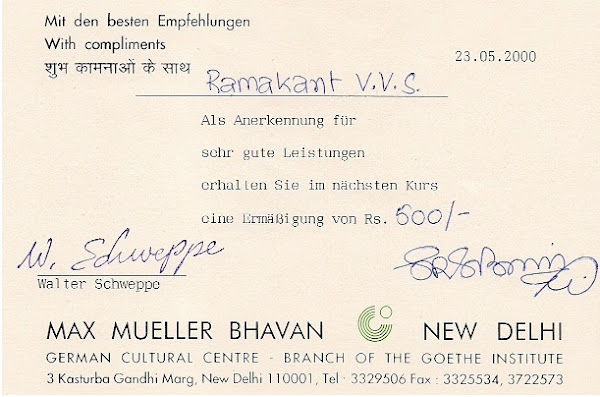 Mit den besten Empfehlungen
With compliments
शुभ कामनाओं के साथ
23.05.2000
Ramakant V.V.S.
Als Anerkennung für
sehr gute Leistungen
erhalten Sie im nächsten Kurs
eine Ermäßigung von Rs. 500/-
W. Schweppe
Walter Schweppe
MAX MUELLER BHAVAN NEW DELHI
GERMAN CULTURAL CENTRE - BRANCH OF THE GOETHE INSTITUTE
3 Kasturba Gandhi Marg, New Delhi 110001, Tel · 3329506 Fax : 3325534, 3722573